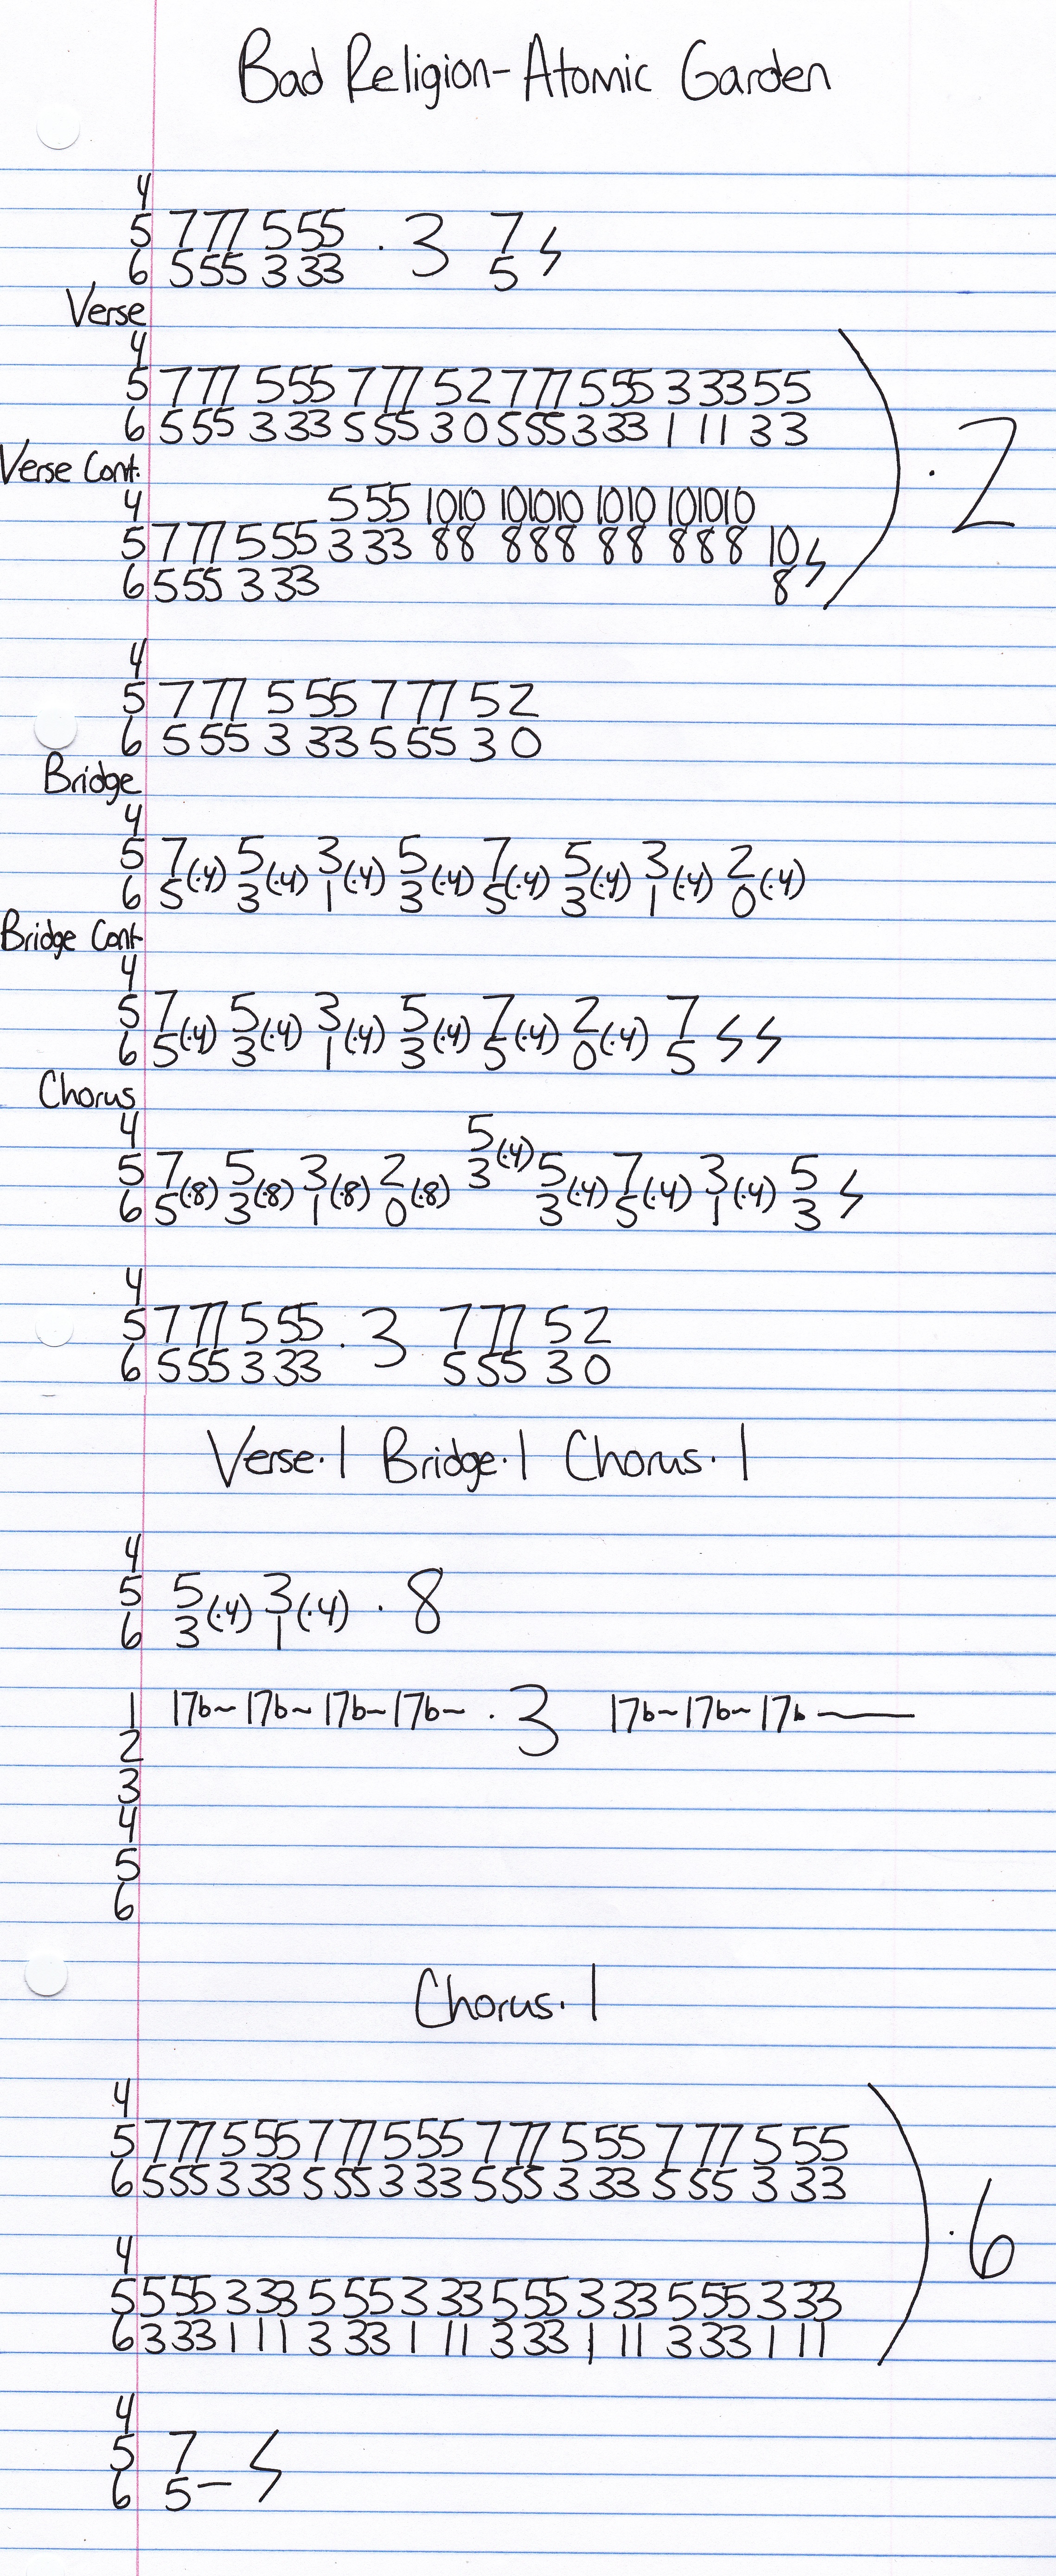 Bad Religion - Atomic Garden
4
5 7 77 5 55 · 3 7 ϟ
6 5 55 3 33 5
Verse
4
5 7 77 5 55 7 77 5 2 7 77 5 55 3 33 5 5
6 5 55 3 33 5 55 3 0 5 55 3 33 1 11 3 3 ) · 2
Verse Cont.
4 5 55 10 10 10 10 10 10 10 10 10 10
5 7 77 5 55 3 33 8 8 8 8 8 8 8 8 8 8 10 ϟ
6 5 55 3 33 8
4
5 7 77 5 55 7 77 5 2
6 5 55 3 33 5 55 3 0
Bridge
4
5 7(·4) 5(·4) 3(·4) 5(·4) 7(·4) 5(·4) 3(·4) 2(·4)
6 5 3 1 3 5 3 1 0
Bridge Cont
4
5 7(·4) 5(·4) 3(·4) 5(·4) 7(·4) 2(·4) 7 ϟ ϟ
6 5 3 1 3 5 0 5
Chorus
4 5(·4)
5 7(·8) 5(·8) 3(·8) 2(·8) 3 5(·4) 7(·4) 3(·4) 5 ϟ
6 5 3 1 0 3 5 1 3
4
5 7 77 5 55 · 3 7 77 5 2
6 5 55 3 33 5 55 3 0
Verse·1 Bridge·1 Chorus·1
4
5 5(·4) 3(·4) · 8
6 3 1
1 17b~17b~17b~17b~ · 3 17b~17b~17b—
2
3
4
5
6
Chorus·1
4
5 7 77 5 55 7 77 5 55 7 77 5 55 7 77 5 55
6 5 55 3 33 5 55 3 33 5 55 3 33 5 55 3 33 ) · 6
4
5 5 55 3 33 5 55 3 33 5 55 3 33 5 55 3 33
6 3 33 1 11 3 33 1 11 3 33 1 11 3 33 1 11
4
5 7 ϟ
6 5—